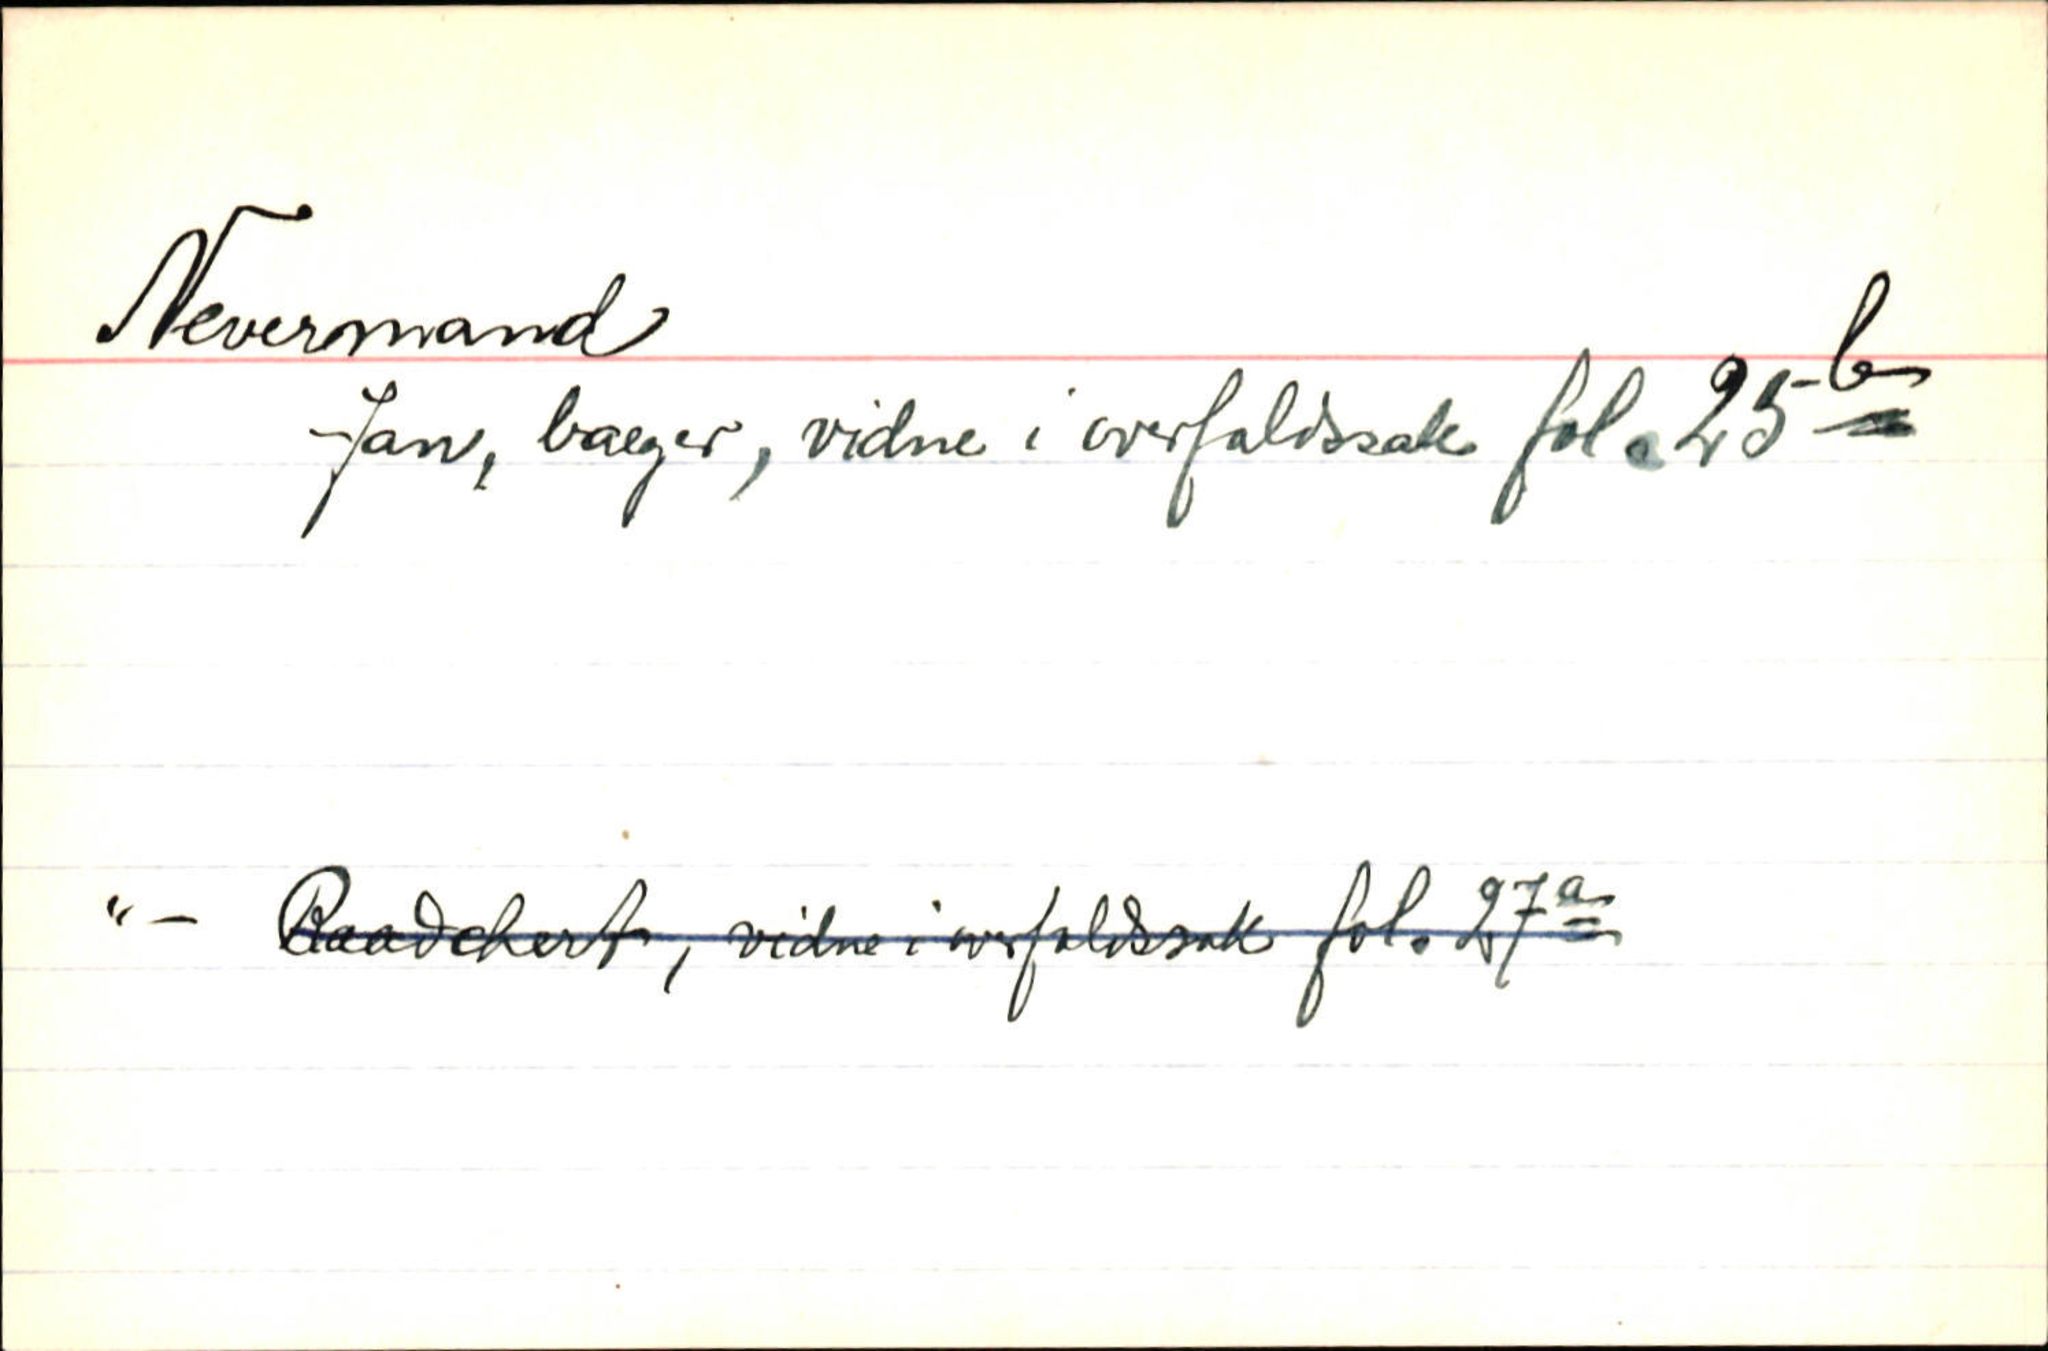 Nevermand
Jan, bager, vidne i overfaldssak fol. 25 b
"- Raadchert, vidne i overfaldssak fol. 27 a